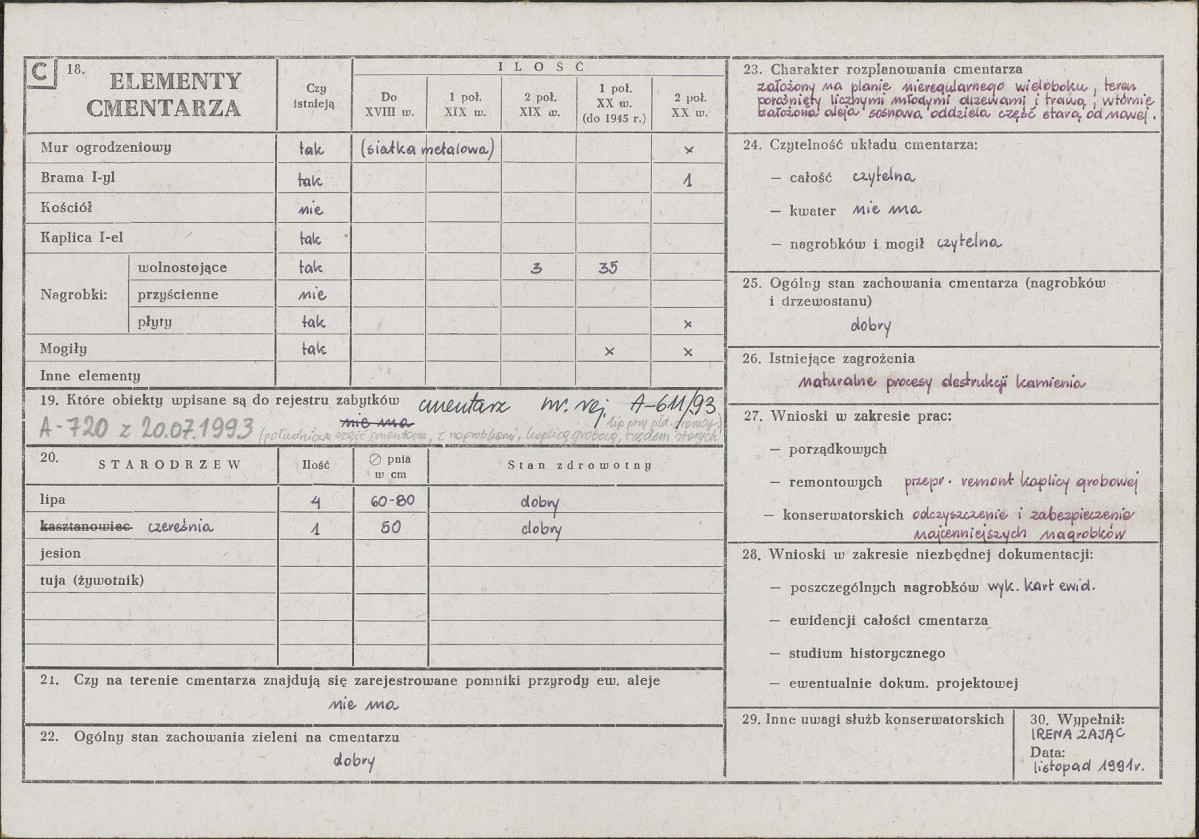 C 18. ELEMENTY CMENTARZA
Czy istnieją
ILOŚĆ
Do XVIII w.
1 poł. XIX w.
2 poł. XIX w.
1 poł. XX w. (do 1945 r.)
2 poł. XX w.
Mur ogrodzeniowy tak (siatka metalowa) x
Brama I-yl tak 1
Kościół nie
Kaplica I-el tak
Nagrobki:
wolnostojące tak 3 35
przyścienne nie
płyty tak x
Mogiły tak x x
Inne elementy
19. Które obiekty wpisane są do rejestru zabytków cmentarz nr. rej. A-611/93
nie ma
A-720 z 20.07.1993 (południowa część cmentarza, z nagrobkami, kaplicą grobową, rzędem starych
lip przy płd. granicy)
20. STARODRZEW Ilość ∅ pnia w cm Stan zdrowotny
lipa 4 60-80 dobry
kasztanowiec czereśnia 1 50 dobry
jesion
tuja (żywotnik)
21. Czy na terenie cmentarza znajdują się zarejestrowane pomniki przyrody ew. aleje
nie ma
22. Ogólny stan zachowania zieleni na cmentarzu
dobry
23. Charakter rozplanowania cmentarza
założony na planie nieregularnego wieloboku, teren
porośnięty licznymi młodymi drzewami i trawą, wtórnie
założona aleja sosnowa oddziela część starą od nowej.
24. Czytelność układu cmentarza:
— całość czytelna
— kwater nie ma
— nagrobków i mogił czytelna
25. Ogólny stan zachowania cmentarza (nagrobków
i drzewostanu)
dobry
26. Istniejące zagrożenia
naturalne procesy destrukcji kamienia
27. Wnioski w zakresie prac:
— porządkowych
— remontowych przepr. remont kaplicy grobowej
— konserwatorskich odczyszczenie i zabezpieczenie
najcenniejszych nagrobków
28. Wnioski w zakresie niezbędnej dokumentacji:
— poszczególnych nagrobków wyk. kart ewid.
— ewidencji całości cmentarza
— studium historycznego
— ewentualnie dokum. projektowej
29. Inne uwagi służb konserwatorskich
30. Wypełnił:
IRENA ZAJĄC
Data:
listopad 1991r.